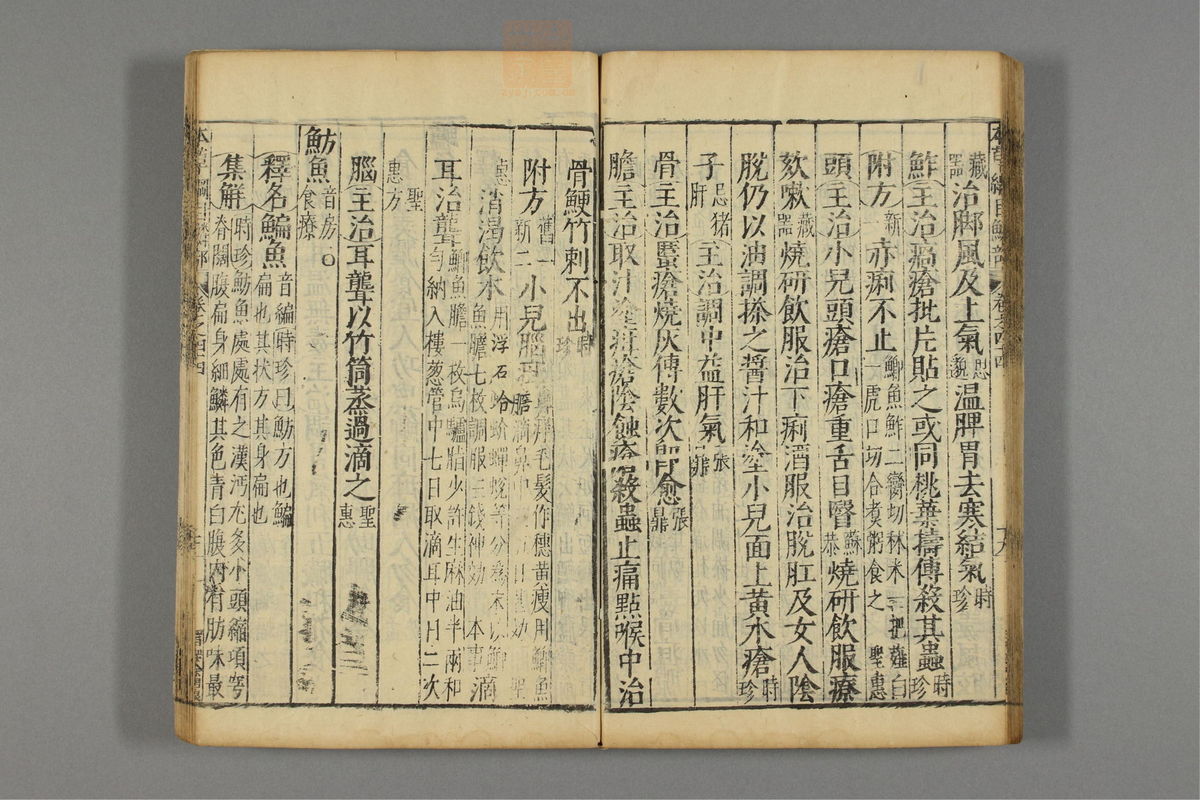 藏器治脚風及上氣思邈温脾胃去寒結氣時珍
鮓主治瘑瘡批片貼之或同桃葉擣傅殺其蟲時珍
附方新一赤痢不止鯽魚鮓二臠切秫米一把薤白一虎口切合煮粥食之聖惠
頭主治小兒頭瘡口瘡重舌目瞖蘇恭燒研飲服療
欬嗽藏器燒研飲服治下痢酒服治脫肛及女人陰
脫仍以油調搽之醬汁和塗小兒面上黄水瘡時珍
子忌猪肝主治調中益肝氣張鼎
骨主治䘌瘡燒灰傅數次即愈張鼎
膽主治取汁塗疳瘡陰蝕瘡殺蟲止痛點喉中治
骨鯁竹刺不出時珍
附方舊一新二小兒腦疳鼻痒毛髮作穗黄瘦用鯽魚膽滴鼻中
消渴飲水用浮石蛤蚧蟬蛻等分為末以鯽魚膽七枚調服三錢神効本事滴
耳治聾鯽魚膽一枚烏驢脂少許生麻油半兩和勻納入樓葱管中七日取滴耳中日二次
聖惠方
腦主治耳聾以竹筒蒸過滴之聖惠
魴魚音房食療
釋名鯿魚音編時珍曰魴方也鯿扁也其状方其身扁也
集解時珍魴魚處處有之漢沔尤多小頭縮項穹脊闊腹扁身細鱗其色青白腹內有肪味最